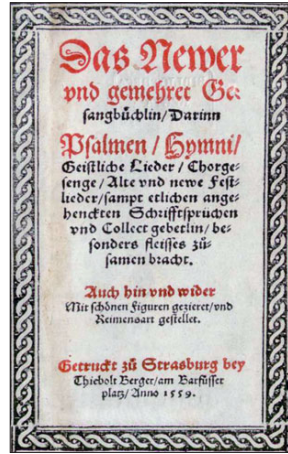 Das Newer
vnd gemehret Ge⸗
sangbüchlin/Darinn
Psalmen/Hymni/
Geistliche Lieder/Chorge⸗
senge/Alte vnd newe Fest⸗
lieder/sampt etlichen ange⸗
henckten Schrifftsprüchen
vnd Collect gebetlin/be⸗
sonders fleisses zů⸗
samen bracht.
Auch hin vnd wider
Mit schönen Figuren gezieret/vnd
Reimensart gestellet.
Getruckt zů Strasburg bey
Thiebolt Berger/am Barfüsser
platz/Anno 1559.